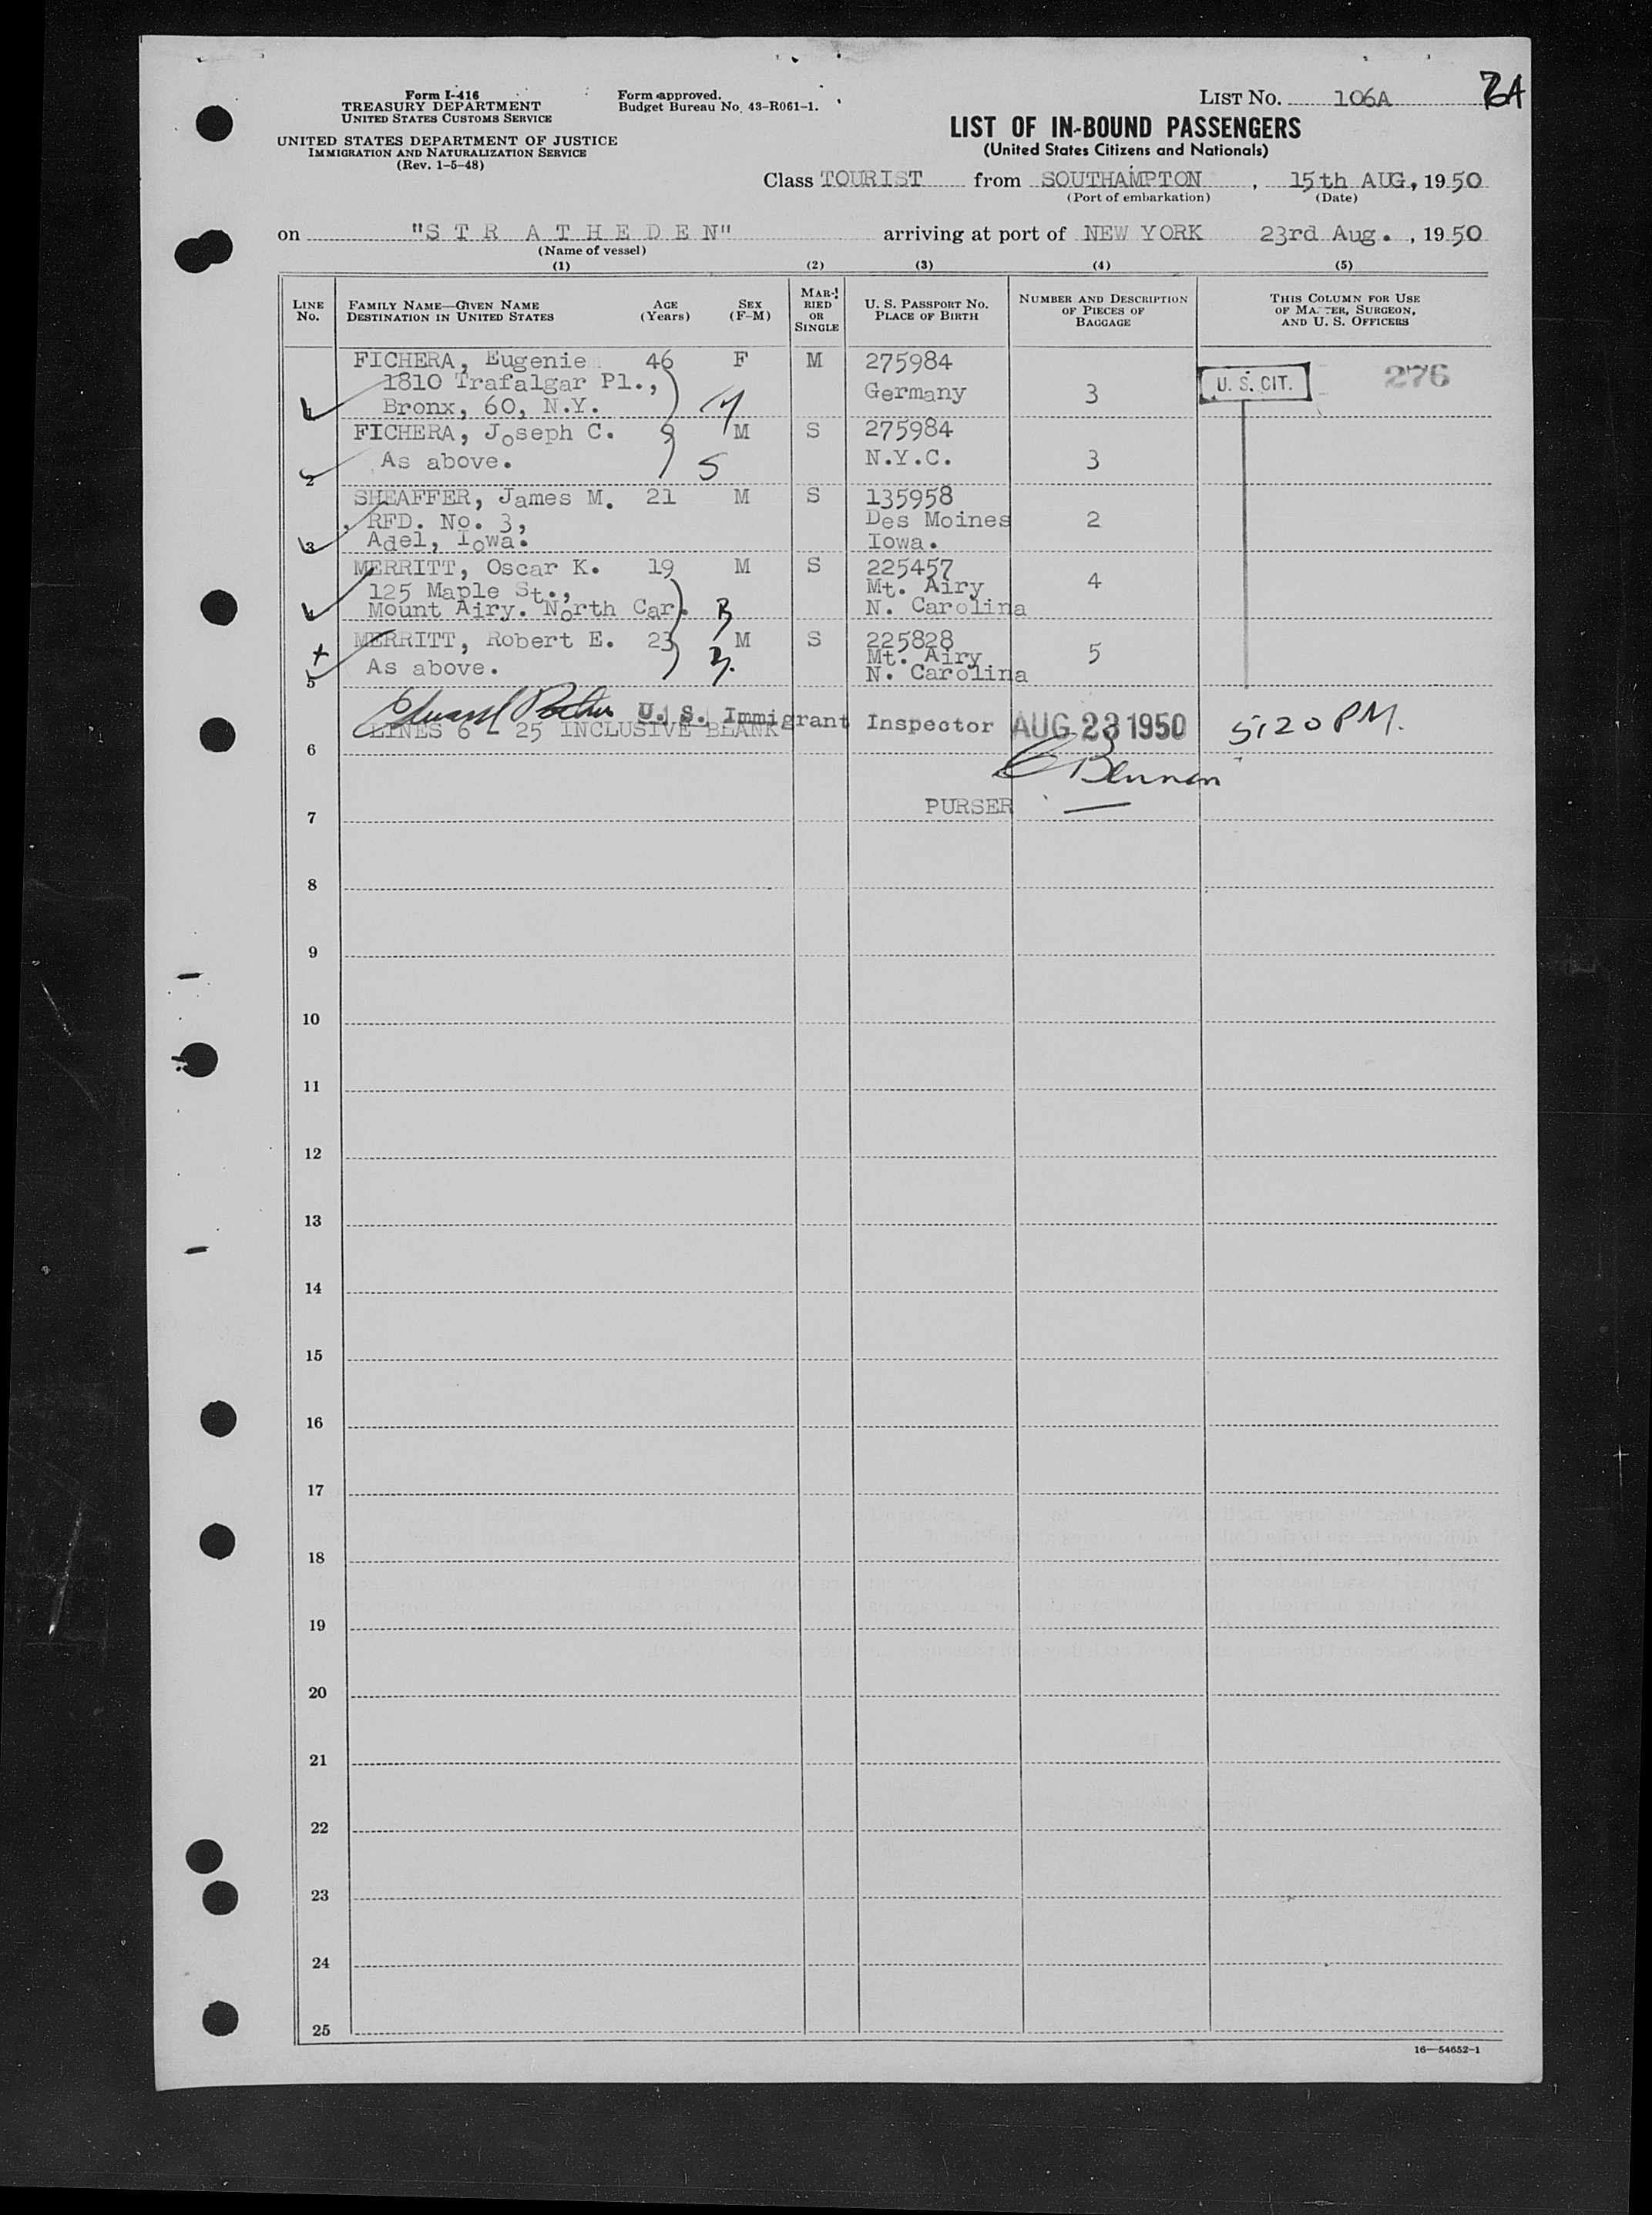 Form I-416
TREASURY DEPARTMENT
UNITED STATES CUSTOMS SERVICE
UNITED STATES DEPARTMENT OF JUSTICE
IMMIGRATION AND NATURALIZATION SERVICE
(Rev. 1-5-48)
Form approved.
Budget Bureau No. 43-R061-1.
LIST NO. 106A
LIST OF IN-BOUND PASSENGERS
(United States Citizens and Nationals)
Class TOURIST from SOUTHAMPTON, 15th AUG., 1950
(Port of embarkation) (Date)
on "S T R A T H E D E N" arriving at port of NEW YORK 23rd Aug., 1950
(Name of vessel)
(1) (2) (3) (4) (5)
LINE NO.
FAMILY NAME—GIVEN NAME
DESTINATION IN UNITED STATES
AGE
(Years)
SEX
(F-M)
MAR-
RIED
OR
SINGLE
U. S. PASSPORT NO.
PLACE OF BIRTH
NUMBER AND DESCRIPTION
OF PIECES OF
BAGGAGE
THIS COLUMN FOR USE
OF MASTER, SURGEON,
AND U. S. OFFICERS
FICHERA, Eugenie 46 F M 275984
1810 Trafalgar Pl., Germany 3 U. S. CIT. 276
1 Bronx, 60, N.Y.
FICHERA, Joseph C. 9 M S 275984
As above. N.Y.C. 3
2 5
SHEAFFER, James M. 21 M S 135958
RFD. No. 3, Des Moines 2
3 Adel, Iowa. Iowa.
MERRITT, Oscar K. 19 M S 225457
125 Maple St., Mt. Airy 4
4 Mount Airy. North Car. N. Carolina
MERRITT, Robert E. 23 M S 225828
Mt. Airy 5
5 As above. N. Carolina
U. S. Immigrant Inspector AUG 23 1950 5:20 PM.
LINES 6 - 25 INCLUSIVE BLANK
6
PURSER
7
8
9
10
11
12
13
14
15
16
17
18
19
20
21
22
23
24
25
16—54652-1